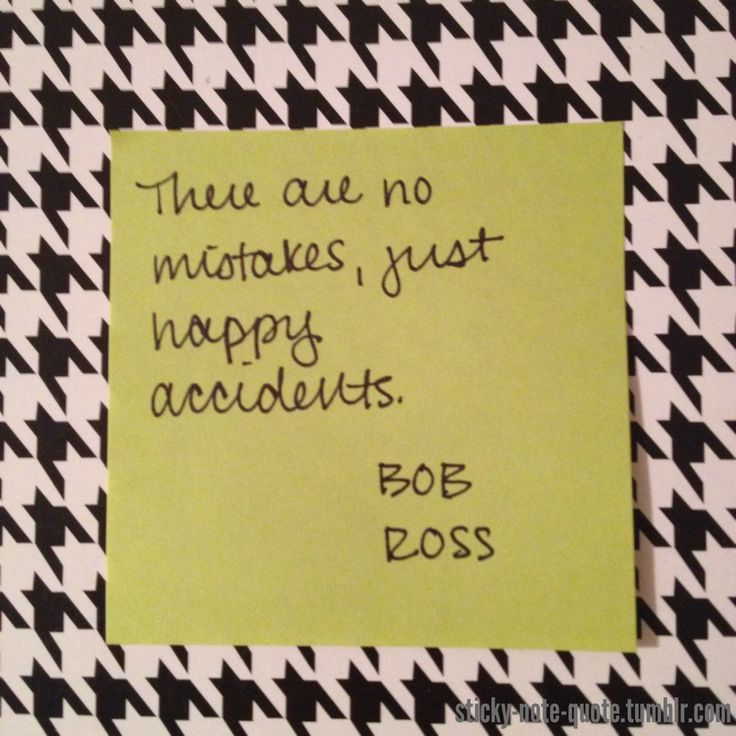 There are no
mistakes, just
happy
accidents.
BOB
ROSS
sticky-note-quote.tumblr.com